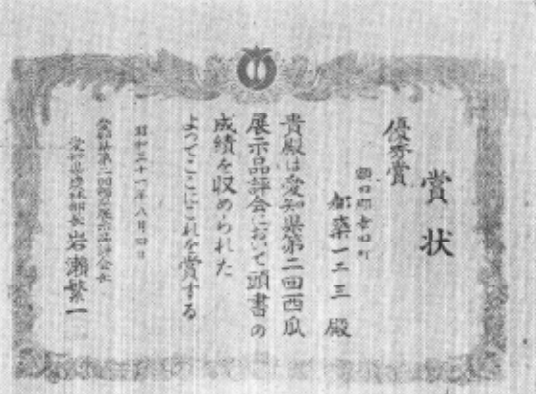 賞状
優秀賞
額田郡幸田町
都築一二三 殿
貴殿は愛知県第二回西瓜
展示品評会において頭書の
成績を収められた
よってここにこれを賞する
昭和三十一年八月四日
愛知県第二回西瓜展示品評会長
愛知県農林部長 岩瀬繁一